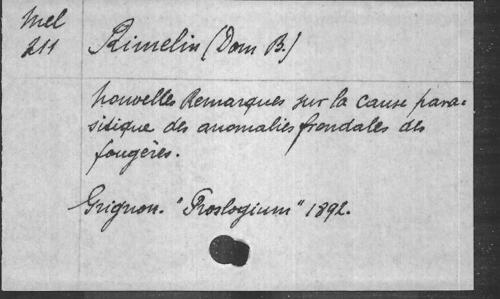 Mel
211
Rimelin (Dom B.)
Nouvelles Remarques sur la cause para-
sitique des anomalies frondales des
fougères.
Grignon. "Proslogium" 1892.